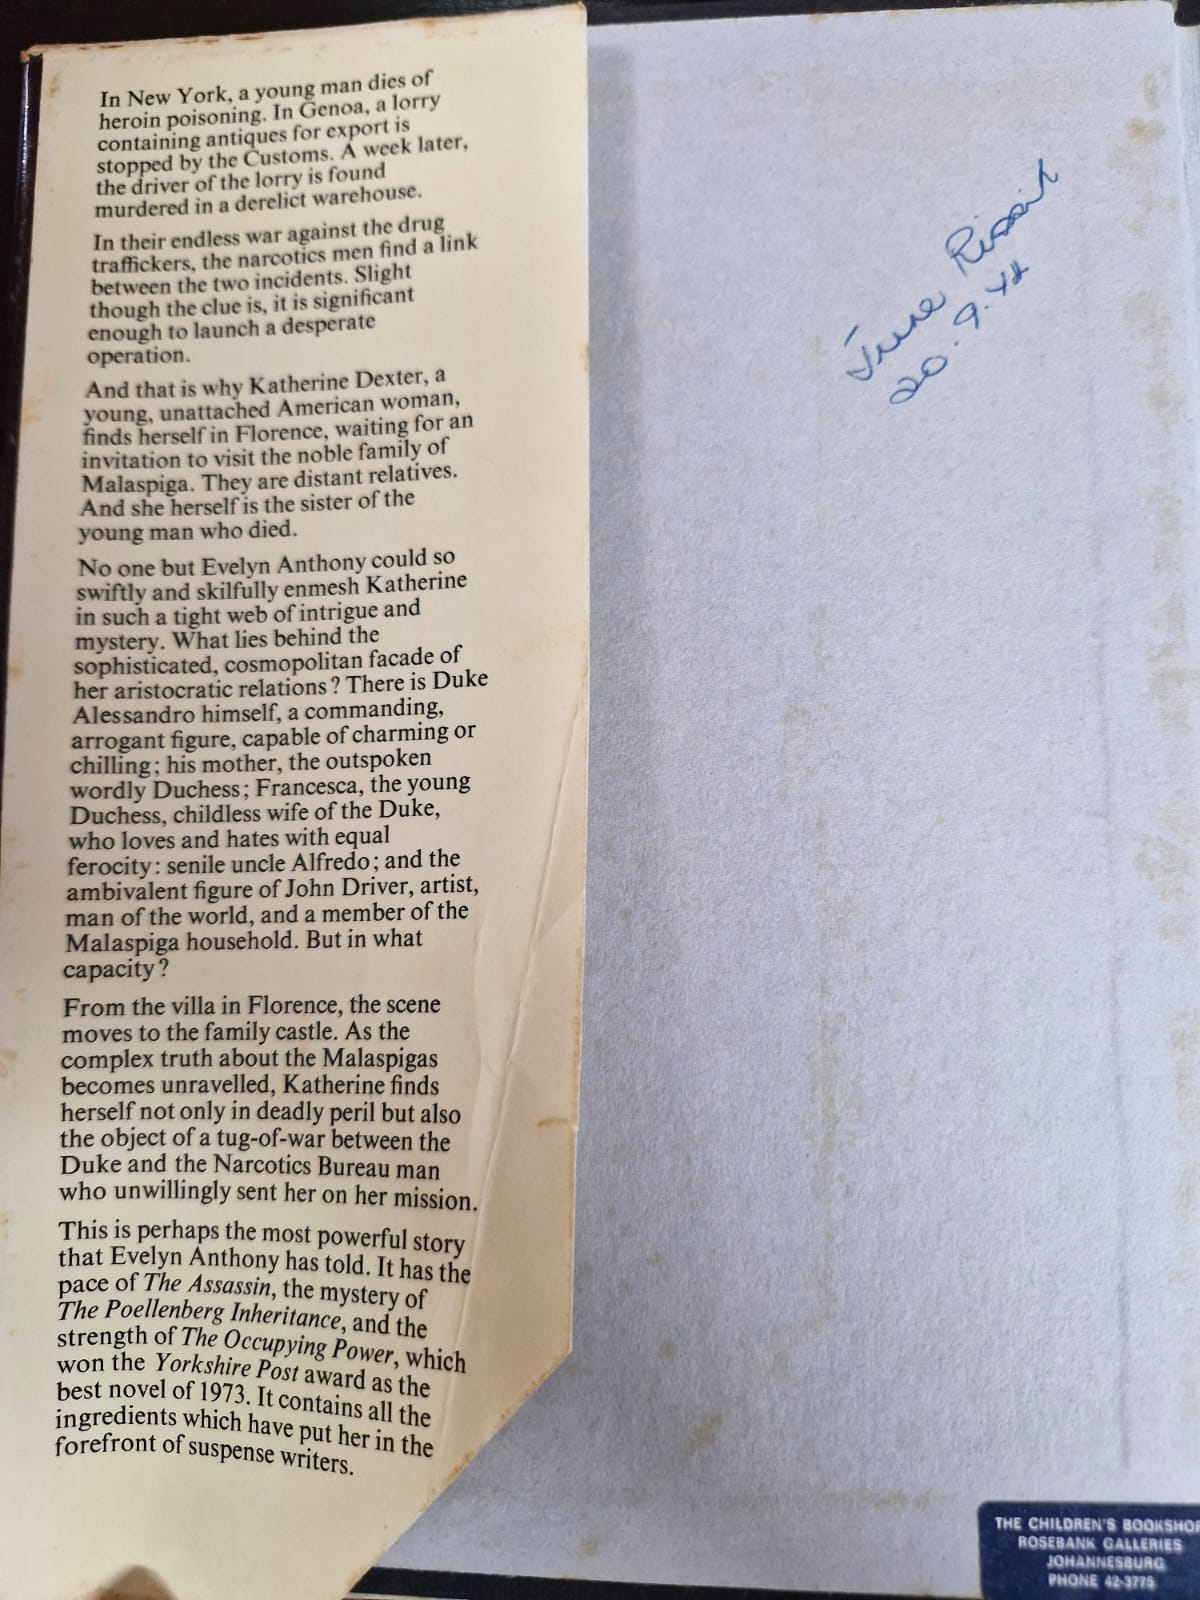 In New York, a young man dies of
heroin poisoning. In Genoa, a lorry
containing antiques for export is
stopped by the Customs. A week later,
the driver of the lorry is found
murdered in a derelict warehouse.
In their endless war against the drug
traffickers, the narcotics men find a link
between the two incidents. Slight
though the clue is, it is significant
enough to launch a desperate
operation.
And that is why Katherine Dexter, a
young, unattached American woman,
finds herself in Florence, waiting for an
invitation to visit the noble family of
Malaspiga. They are distant relatives.
And she herself is the sister of the
young man who died.
No one but Evelyn Anthony could so
swiftly and skilfully enmesh Katherine
in such a tight web of intrigue and
mystery. What lies behind the
sophisticated, cosmopolitan facade of
her aristocratic relations? There is Duke
Alessandro himself, a commanding,
arrogant figure, capable of charming or
chilling; his mother, the outspoken
wordly Duchess; Francesca, the young
Duchess, childless wife of the Duke,
who loves and hates with equal
ferocity: senile uncle Alfredo; and the
ambivalent figure of John Driver, artist,
man of the world, and a member of the
Malaspiga household. But in what
capacity?
From the villa in Florence, the scene
moves to the family castle. As the
complex truth about the Malaspigas
becomes unravelled, Katherine finds
herself not only in deadly peril but also
the object of a tug-of-war between the
Duke and the Narcotics Bureau man
who unwillingly sent her on her mission.
This is perhaps the most powerful story
that Evelyn Anthony has told. It has the
pace of The Assassin, the mystery of
The Poellenberg Inheritance, and the
strength of The Occupying Power, which
won the Yorkshire Post award as the
best novel of 1973. It contains all the
ingredients which have put her in the
forefront of suspense writers.
June
20.9.
THE CHILDREN'S BOOKSHOP
ROSEBANK GALLERIES
JOHANNESBURG
PHONE 42-3775